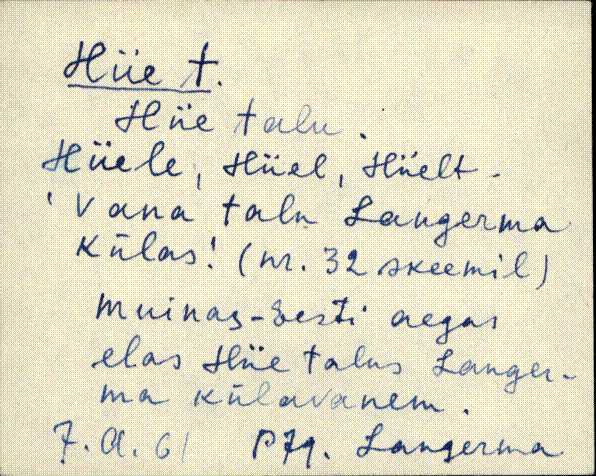 Hüe t.
Hüe talu.
Hüele, Hüel, Hüelt.
'Vana talu Langerma
külas! (nr. 32 skeemil)
Muinas-Eesti aegas
elas Hüe talus Langer-
ma külavanem.
7. A. 61 Langerma